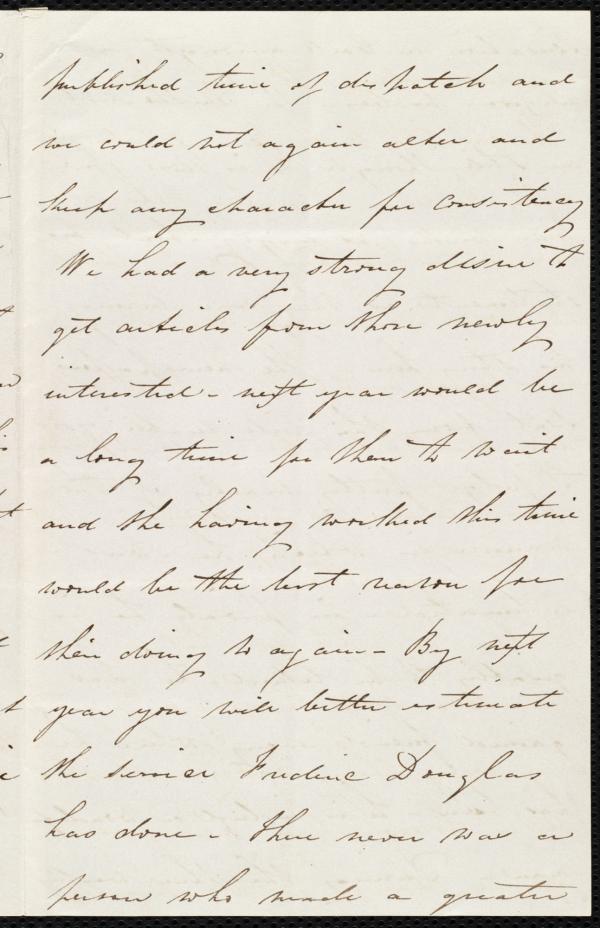 published time of despatch and
we could not again alter and
keep any character for consistency
We had a very strong desire to
get articles from those newly
interested - next year would be
a long time for them to wait
and the having worked this time
would be the best reason for
their doing so again - By next
year you will better estimate
the service Frederic Douglas
has done - there never was a
person who made a greater